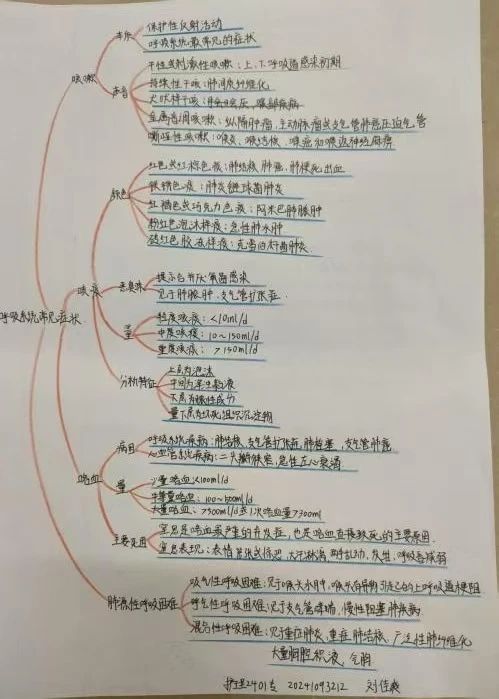 咳嗽
本质
保护性反射活动
呼吸系统最常见的症状
声音
干性或刺激性咳嗽：上、下呼吸道感染初期
持续性干咳：肺间质纤维化
犬吠样干咳：会厌、喉部疾病
金属音调咳嗽：纵隔肿瘤，主动脉瘤或支气管肺癌压迫气管
嘶哑性咳嗽：喉炎、喉结核、喉癌和喉返神经麻痹
呼吸系统常见症状
咳痰
颜色
红色或红棕色痰：肺结核、肺癌、肺梗死出血
铁锈色痰：肺炎链球菌肺炎
红褐色或巧克力色痰：阿米巴肺脓肿
粉红色泡沫样痰：急性肺水肿
砖红色胶冻样痰：克雷伯杆菌肺炎
恶臭味
提示合并厌氧菌感染
见于肺脓肿、支气管扩张症
量
轻度咳痰：<10ml/d
中度咳痰：10~150ml/d
重度咳痰：>150ml/d
分析特征
上层为泡沫
中间为浆液
下层为脓性成分
最下层为坏死组织沉淀物
咯血
病因
呼吸系统疾病：肺结核、支气管扩张症、肺栓塞、支气管肺癌
心血管系统疾病：二尖瓣狭窄、急性左心衰竭
量
少量咯血<100ml/d
中等量咯血：100~500ml/d
大量咯血：>500ml/d或1次咯血量>300ml
主要死因
窒息是咯血最严重的并发症，也是咯血直接致死的主要原因
窒息表现：表情紧张或惊恐、大汗淋漓、两手乱动、发绀、呼吸音减弱
肺源性呼吸困难
吸气性呼吸困难：见于喉头水肿、喉头有异物引起的上呼吸道梗阻
呼气性呼吸困难：见于支气管哮喘，慢性阻塞肺疾病
混合性呼吸困难：见于重症肺炎、重症肺结核、广泛性肺纤维化
大量胸腔积液、气胸
护理2401专 20241093212 刘佳